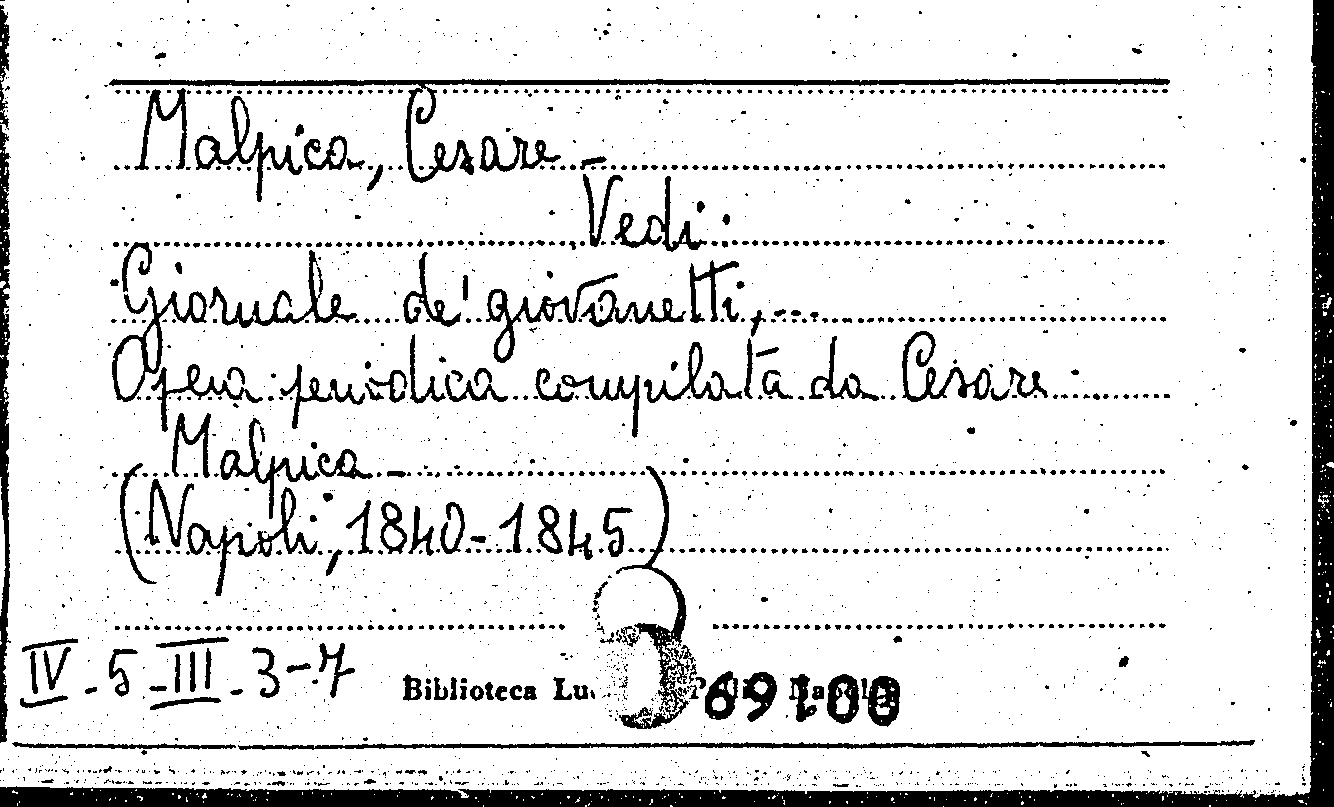 Malpica, Cesare -
Vedi:
Giornale de' giovanetti,...
Opera periodica compilata da Cesare
Malpica -
(Napoli, 1840-1845)
IV - 5 - III - 3-7
Biblioteca